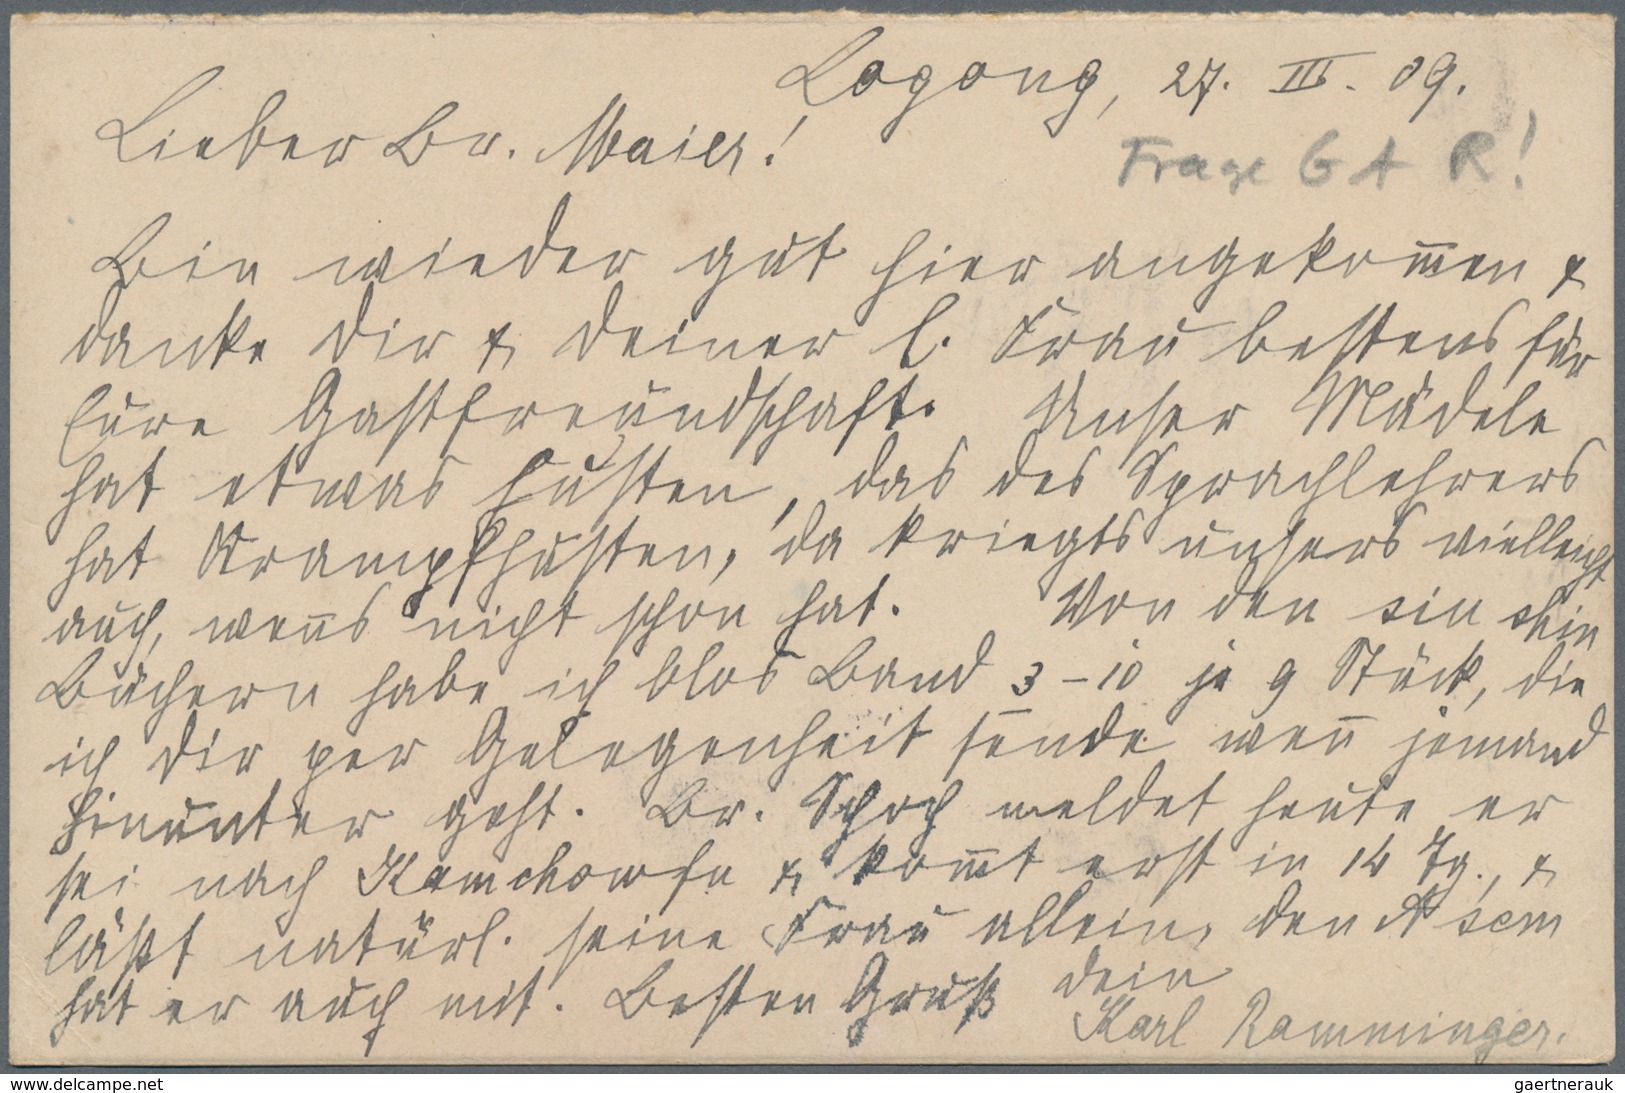 Logong, 27. III. 09.
Lieber Br. Maier!
Frage G A R!
Bin wieder gut hier angekom̅en &
danke Dir & Deiner l. Frau bestens für
Eure Gastfreundschaft. Unser Mädele
hat etwas Husten, das des Sprachlehrers
hat Krampfhusten, da kriegts unsers vielleicht
auch, wen̅s nicht schon hat. Von den sin shin
Büchern habe ich blos Band 3-10 je 9 Stück, die
ich Dir per Gelegenheit sende wen̅ jemand
hinunter geht. Br. Schoch meldet heute er
sei nach Kamchowfu & kom̅t erst in 14 Tg., &
läßt natürl. seine Frau allein, den A sem
hat er auch mit. Besten Gruß Dein
Karl Ramminger.
delcampe.net
gaertnerauk